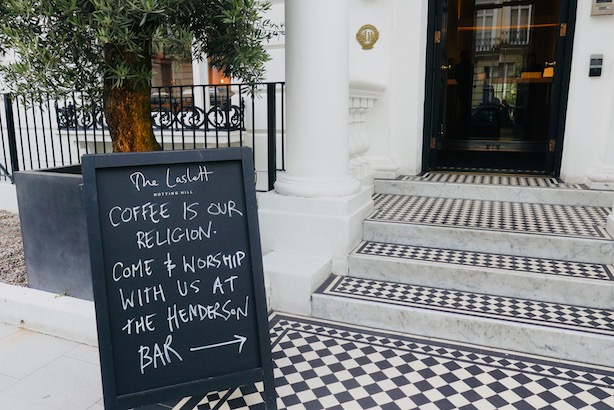 The Laslett
NOTTING HILL
COFFEE IS OUR
RELIGION.
COME & WORSHIP
WITH US AT
THE HENDERSON
BAR →